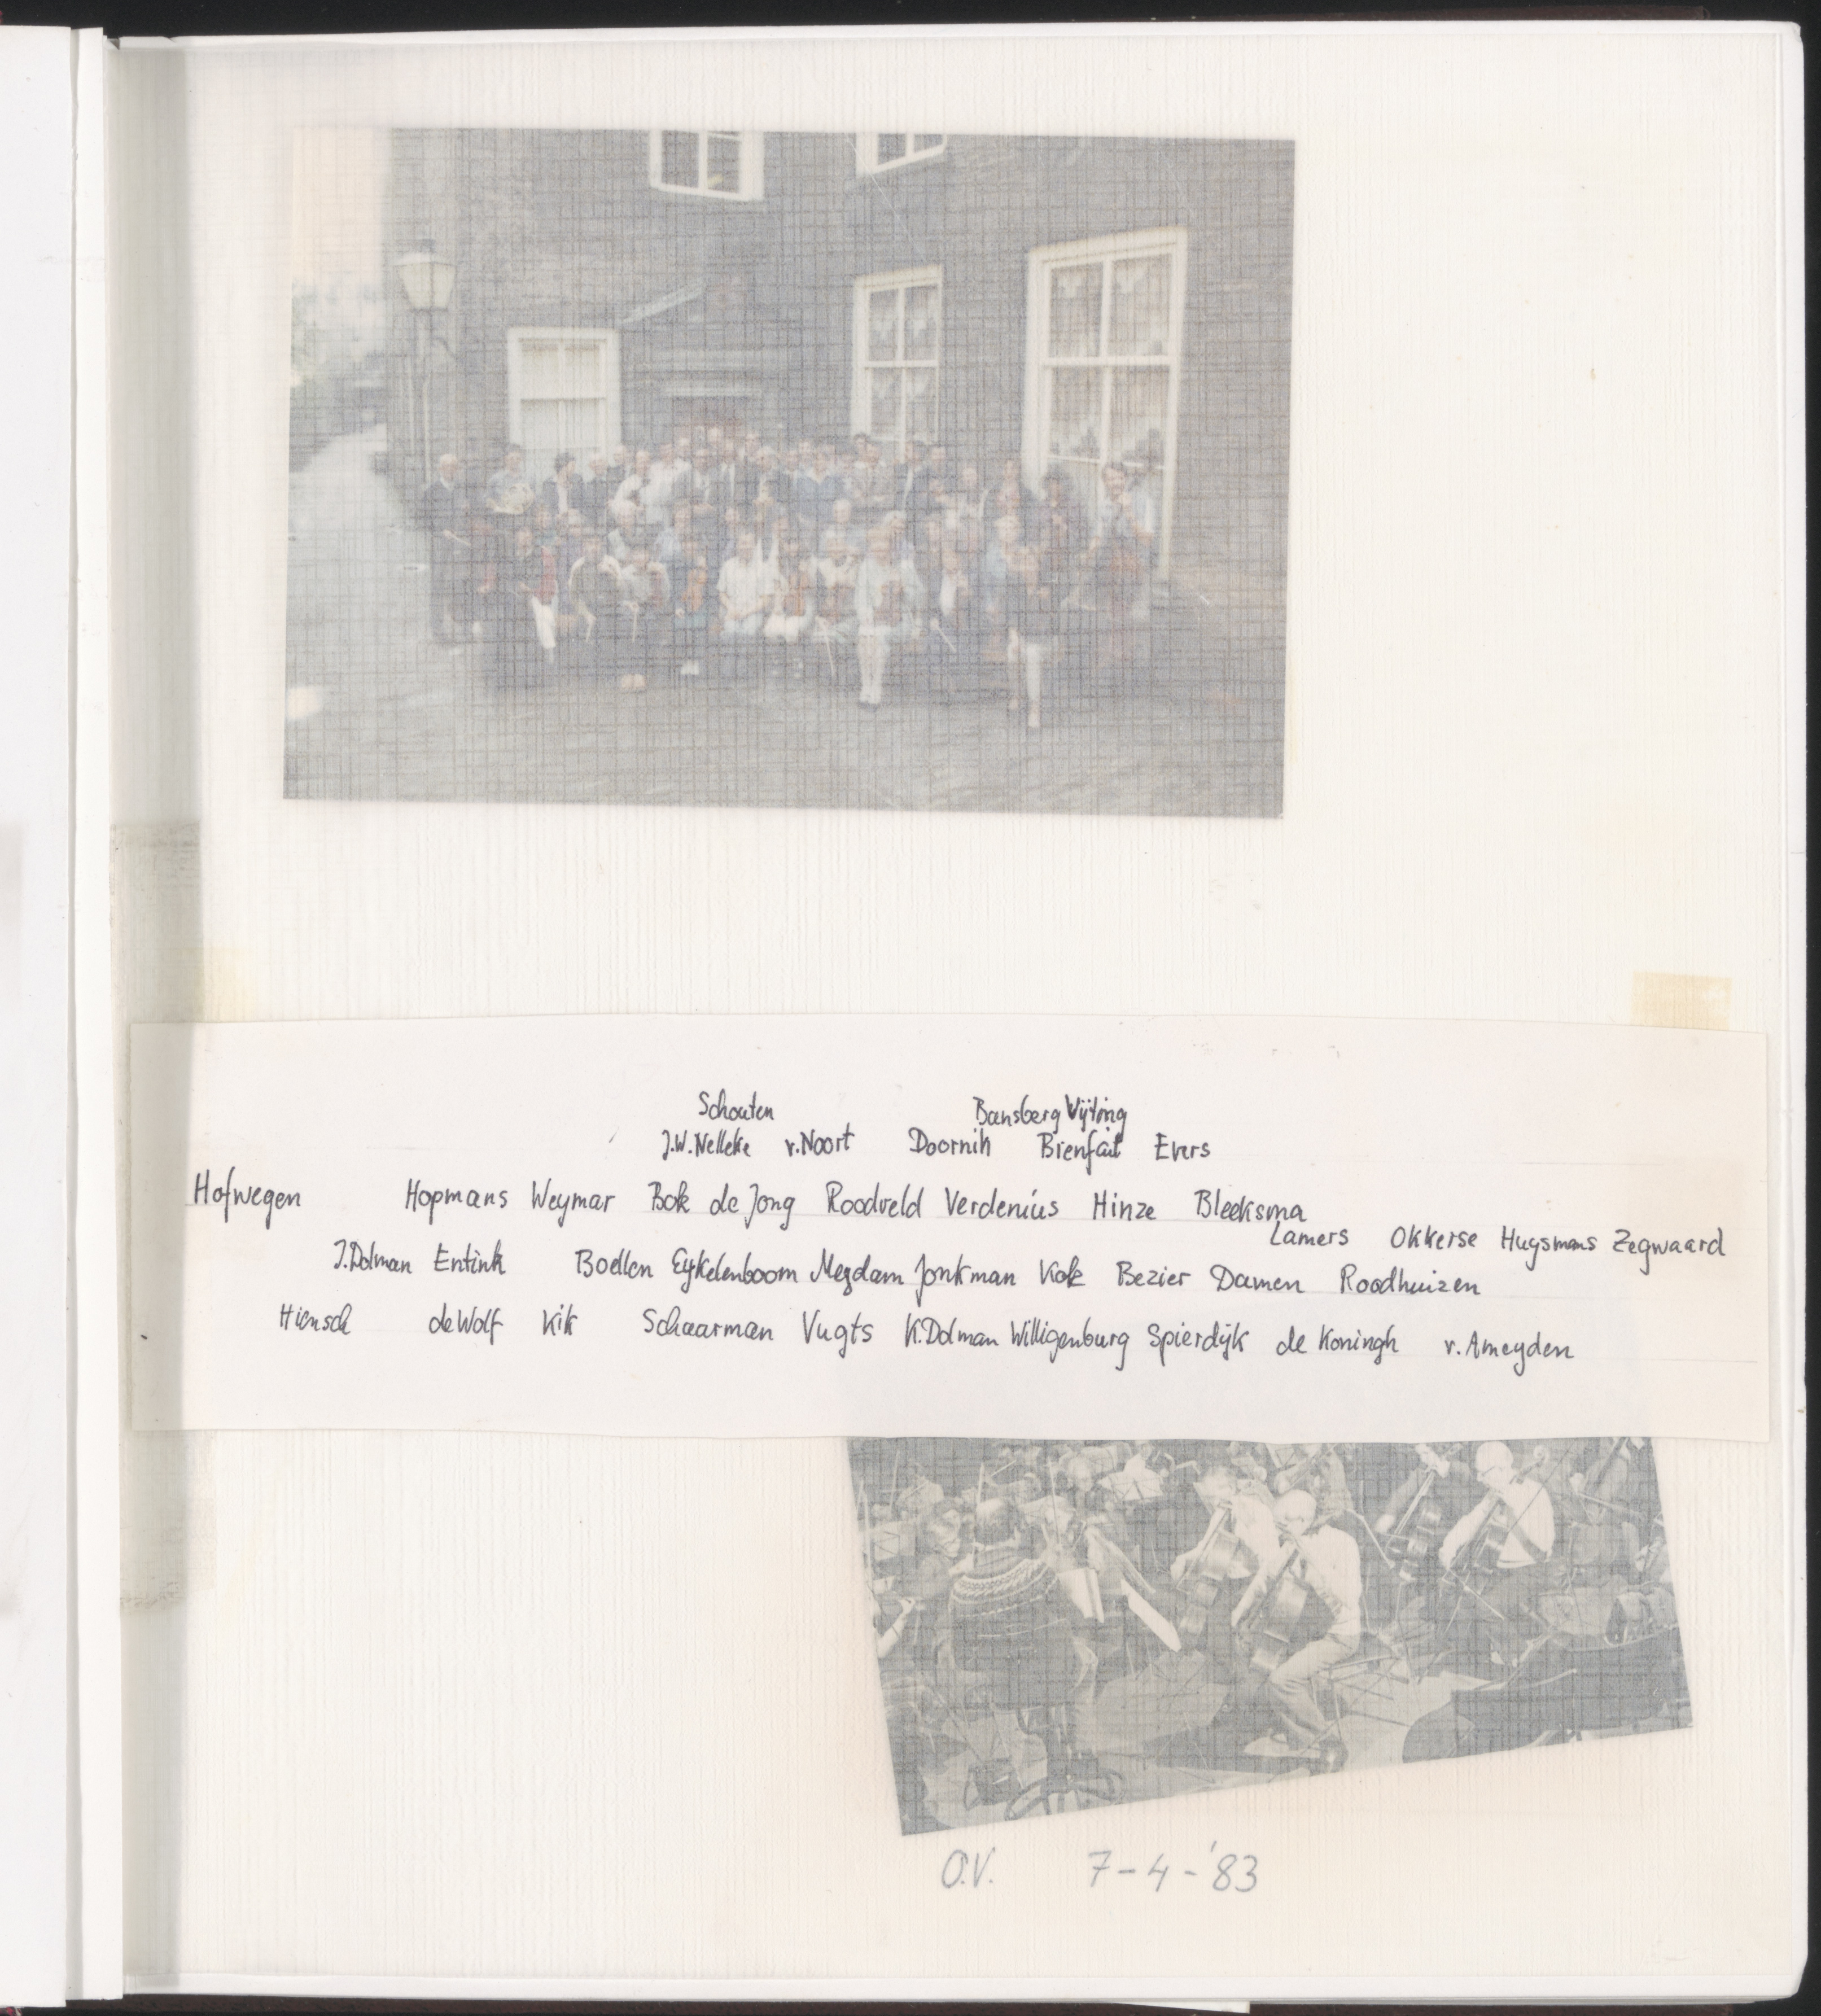 Schouten Bansberg Wijting
J.W. Nelleke v. Noort Doornik Bienfait Evers
Hofwegen Hopmans Weymar Bok de Jong Roodveld Verdenius Hinze Bleeksma
Lamers Okkerse Huysmans Zegwaard
J. Dolman Entink Boellen Eykelenboom Megdam Jonkman Kok Bezier Damen Roodhuizen
Hiensch de Wolf Kik Schaarman Vugts K. Dolman Willigenburg Spierdijk de Koningh v. Ameyden
O.V. 7-4-'83